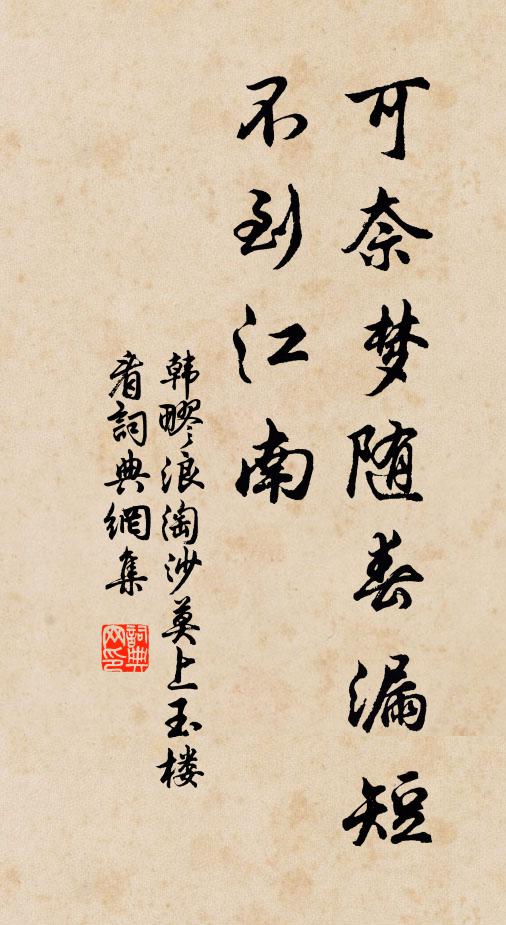 可奈梦随春漏短
不到江南
韩疁浪淘沙莫上玉楼
看词典網集
詞典网印